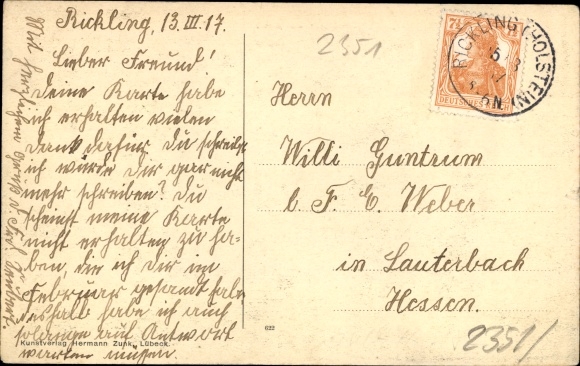 Rickling, 13. III. 17.
Lieber Freund!
Deine Karte habe
ich erhalten vielen
Dank dafür. Du schreibst
ich würde dir gar nicht
mehr schreiben? Du
scheinst meine Karte
nicht erhalten zu ha-
ben, die ich Dir im
Februar gesandt habe
deshalb habe ich auch
solange auf Antwort
warten müssen.
Mit herzlichem Gruß
Kunstverlag Hermann Zunk, Lübeck.
622
2351
7½
DEUTSCHES
RICKLING (HOLSTEIN)
Herrn
Willi Guntrum
b. F. C. Weber
in Lauterbach
Hessen.
2351/